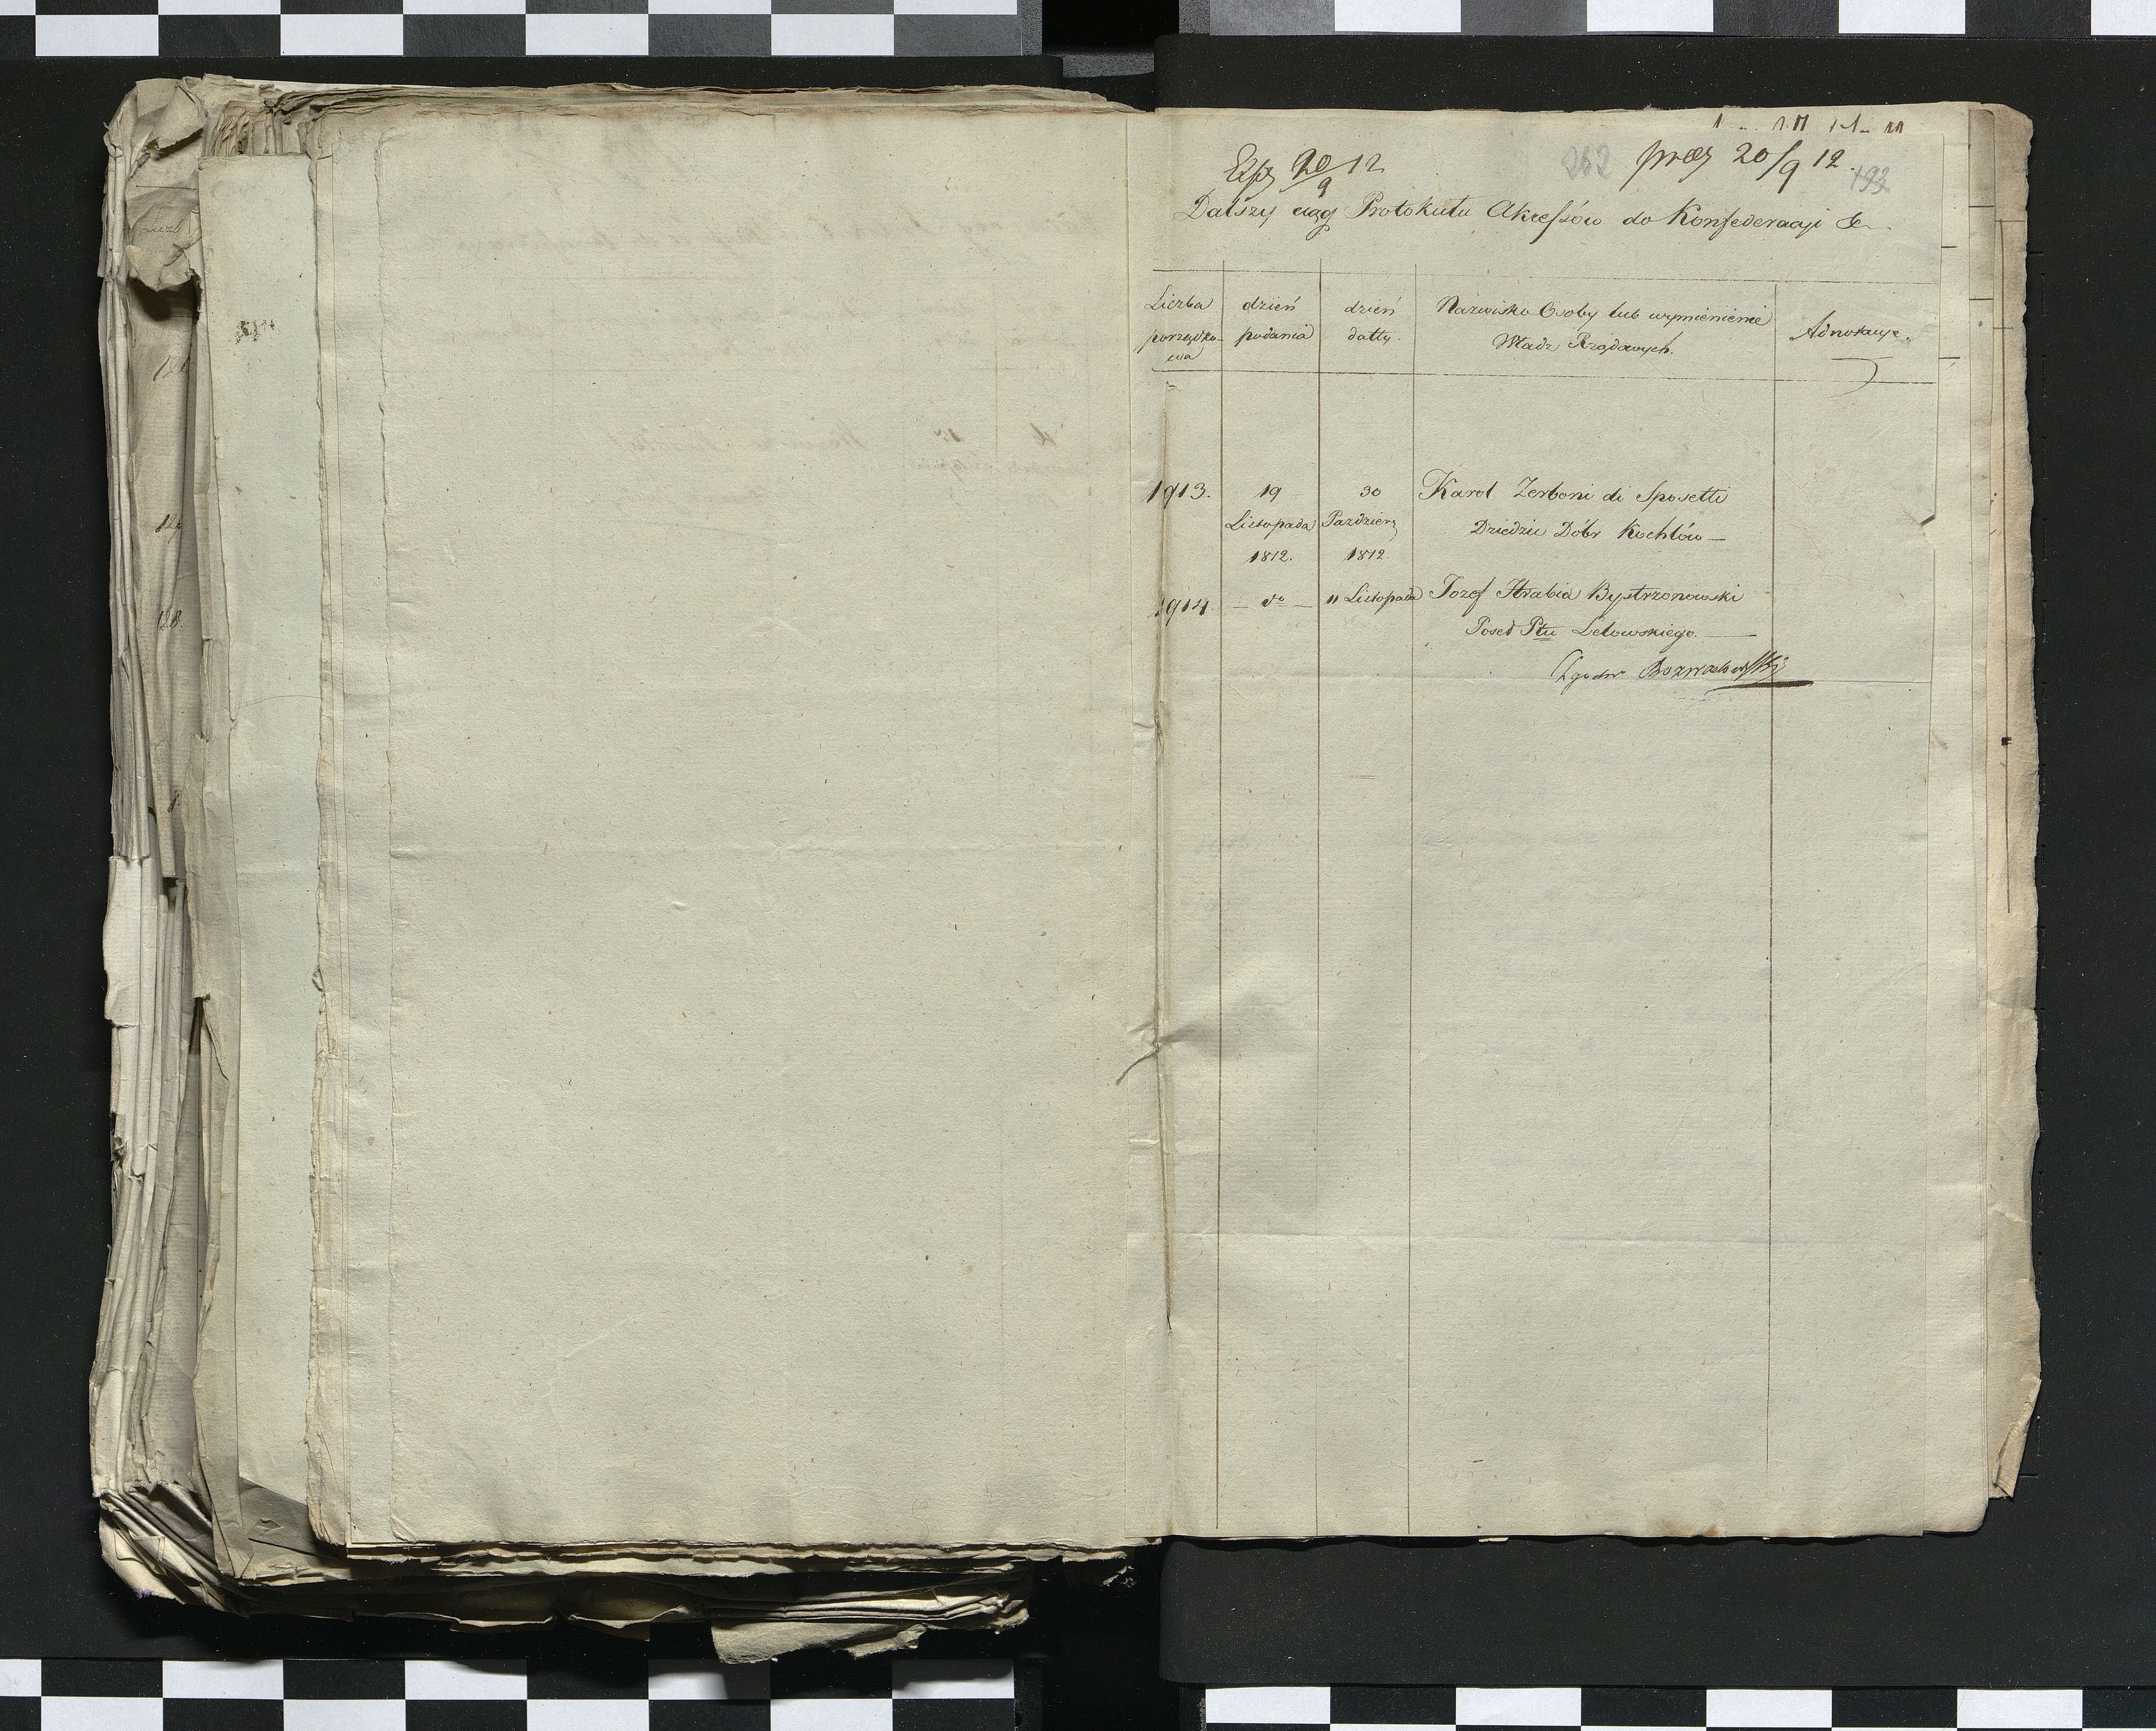 Exp 20/9 12
262 præs 20/9 12.
193
Dalszy ciąg Protokułu Akcessów do Konfederacyi &c.
Liczba porządko-wa
dzień podania
dzień datty.
Nazwisko Osoby lub wymienienie Władz Rządowych.
Adnotacye.
1913.
19 Listopada 1812.
30 Pazdzier 1812
Karol Zerboni di Sposetti
Dziedzic Dóbr Kochlów —
1914.
— do —
11 Listopada
Jozef Hrabia Bystrzonowski
Posed Ptu Lelowskiego. —
Zgodno
128.